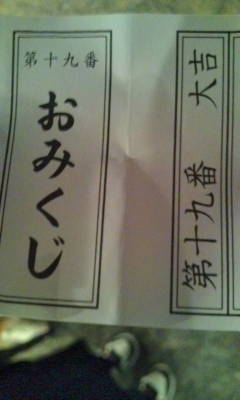 第十九番
おみくじ
第十九番 大吉